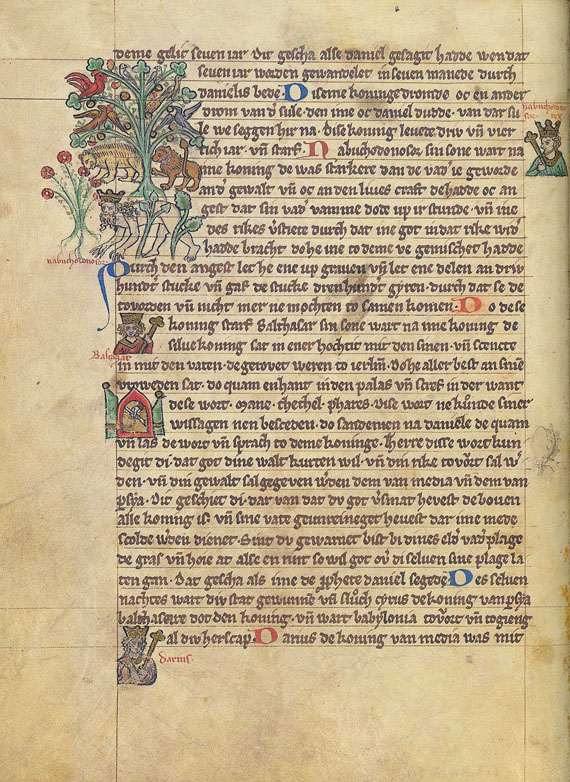 deme gelit seven iar· Dit gescha alse daniel gesagit hadde wen dat
seven iar worden gewandelet in seven manede durch
danielis bede· Diseme koninge dromde oc en ander
drom van d' sule· den ime oc daniel dudde· van dar su
le we seggen hir na· Dise koning levete driv vn̄ vier
tich iar· vn̄ starf· Nabuchodonosor sin sone wart na
nabuchodonosor rex
ime koning de was starkere dan de vad' ie geworde
an d' gewalt vn̄ oc an den lives craft de hadde oc an
gest dat sin vad' van me dode up ir stunde· vn̄ ime
des rikes durch dat ime got in dat rike wid'
hadde bracht do he ine to deme ve gemischet hadde
nabuchodonosor·
Durch den angest let he ene up graven vn̄ let ene delen an driv
hundt stucke vn̄ gaf de stucke dren hundt gyren· durch dat se de
to vorden vn̄ nicht mer ne mochten to samen komen· Do dese
koning starf Balthasar sin sone wart na ime koning· de
Baltazar
selve koning sat in ener hochtit mit den sinen· vn̄ scencte
in mit den vaten· de gerovet weren to ierlm̄· Do he aller best an sine
vroweden sat· do quam en hant in den palas vn̄ scref in der want
dese wort· Mane· thechel· phares· Dise wort ne kunde siner
wissagen nen besceden· do sande men na daniele de quam
vn̄ las de wort vn̄ sprach to deme koninge· Herre disse wort kun
degit di· dat got dine walt kurten wil· vn̄ din rike sal w'
den· vn̄ din gewalt sal gegeven w'den dem van media vn̄ dem van
psya· Dit geschiet di· dar van dat du got v'smat hevest de boven
alle koning is· vn̄ sine vate geunreineget hevest dar ime mede
scolde w'den dienet· Sint du gewarnet bist bi dines vad' plage
de gras vn̄ hoie at alse en rint so wil got ov' di selven sine plage la
ten gan· Dat gescha als ime de pphete daniel segede· Des selven
nachtes wart div stat gewunnē vn̄ sluch cyrus de koning van psya
balthasere dot den koning· vn̄ wart babylonia vn̄ togieng
al div herscap· Darius de koning van media was mit
darius·